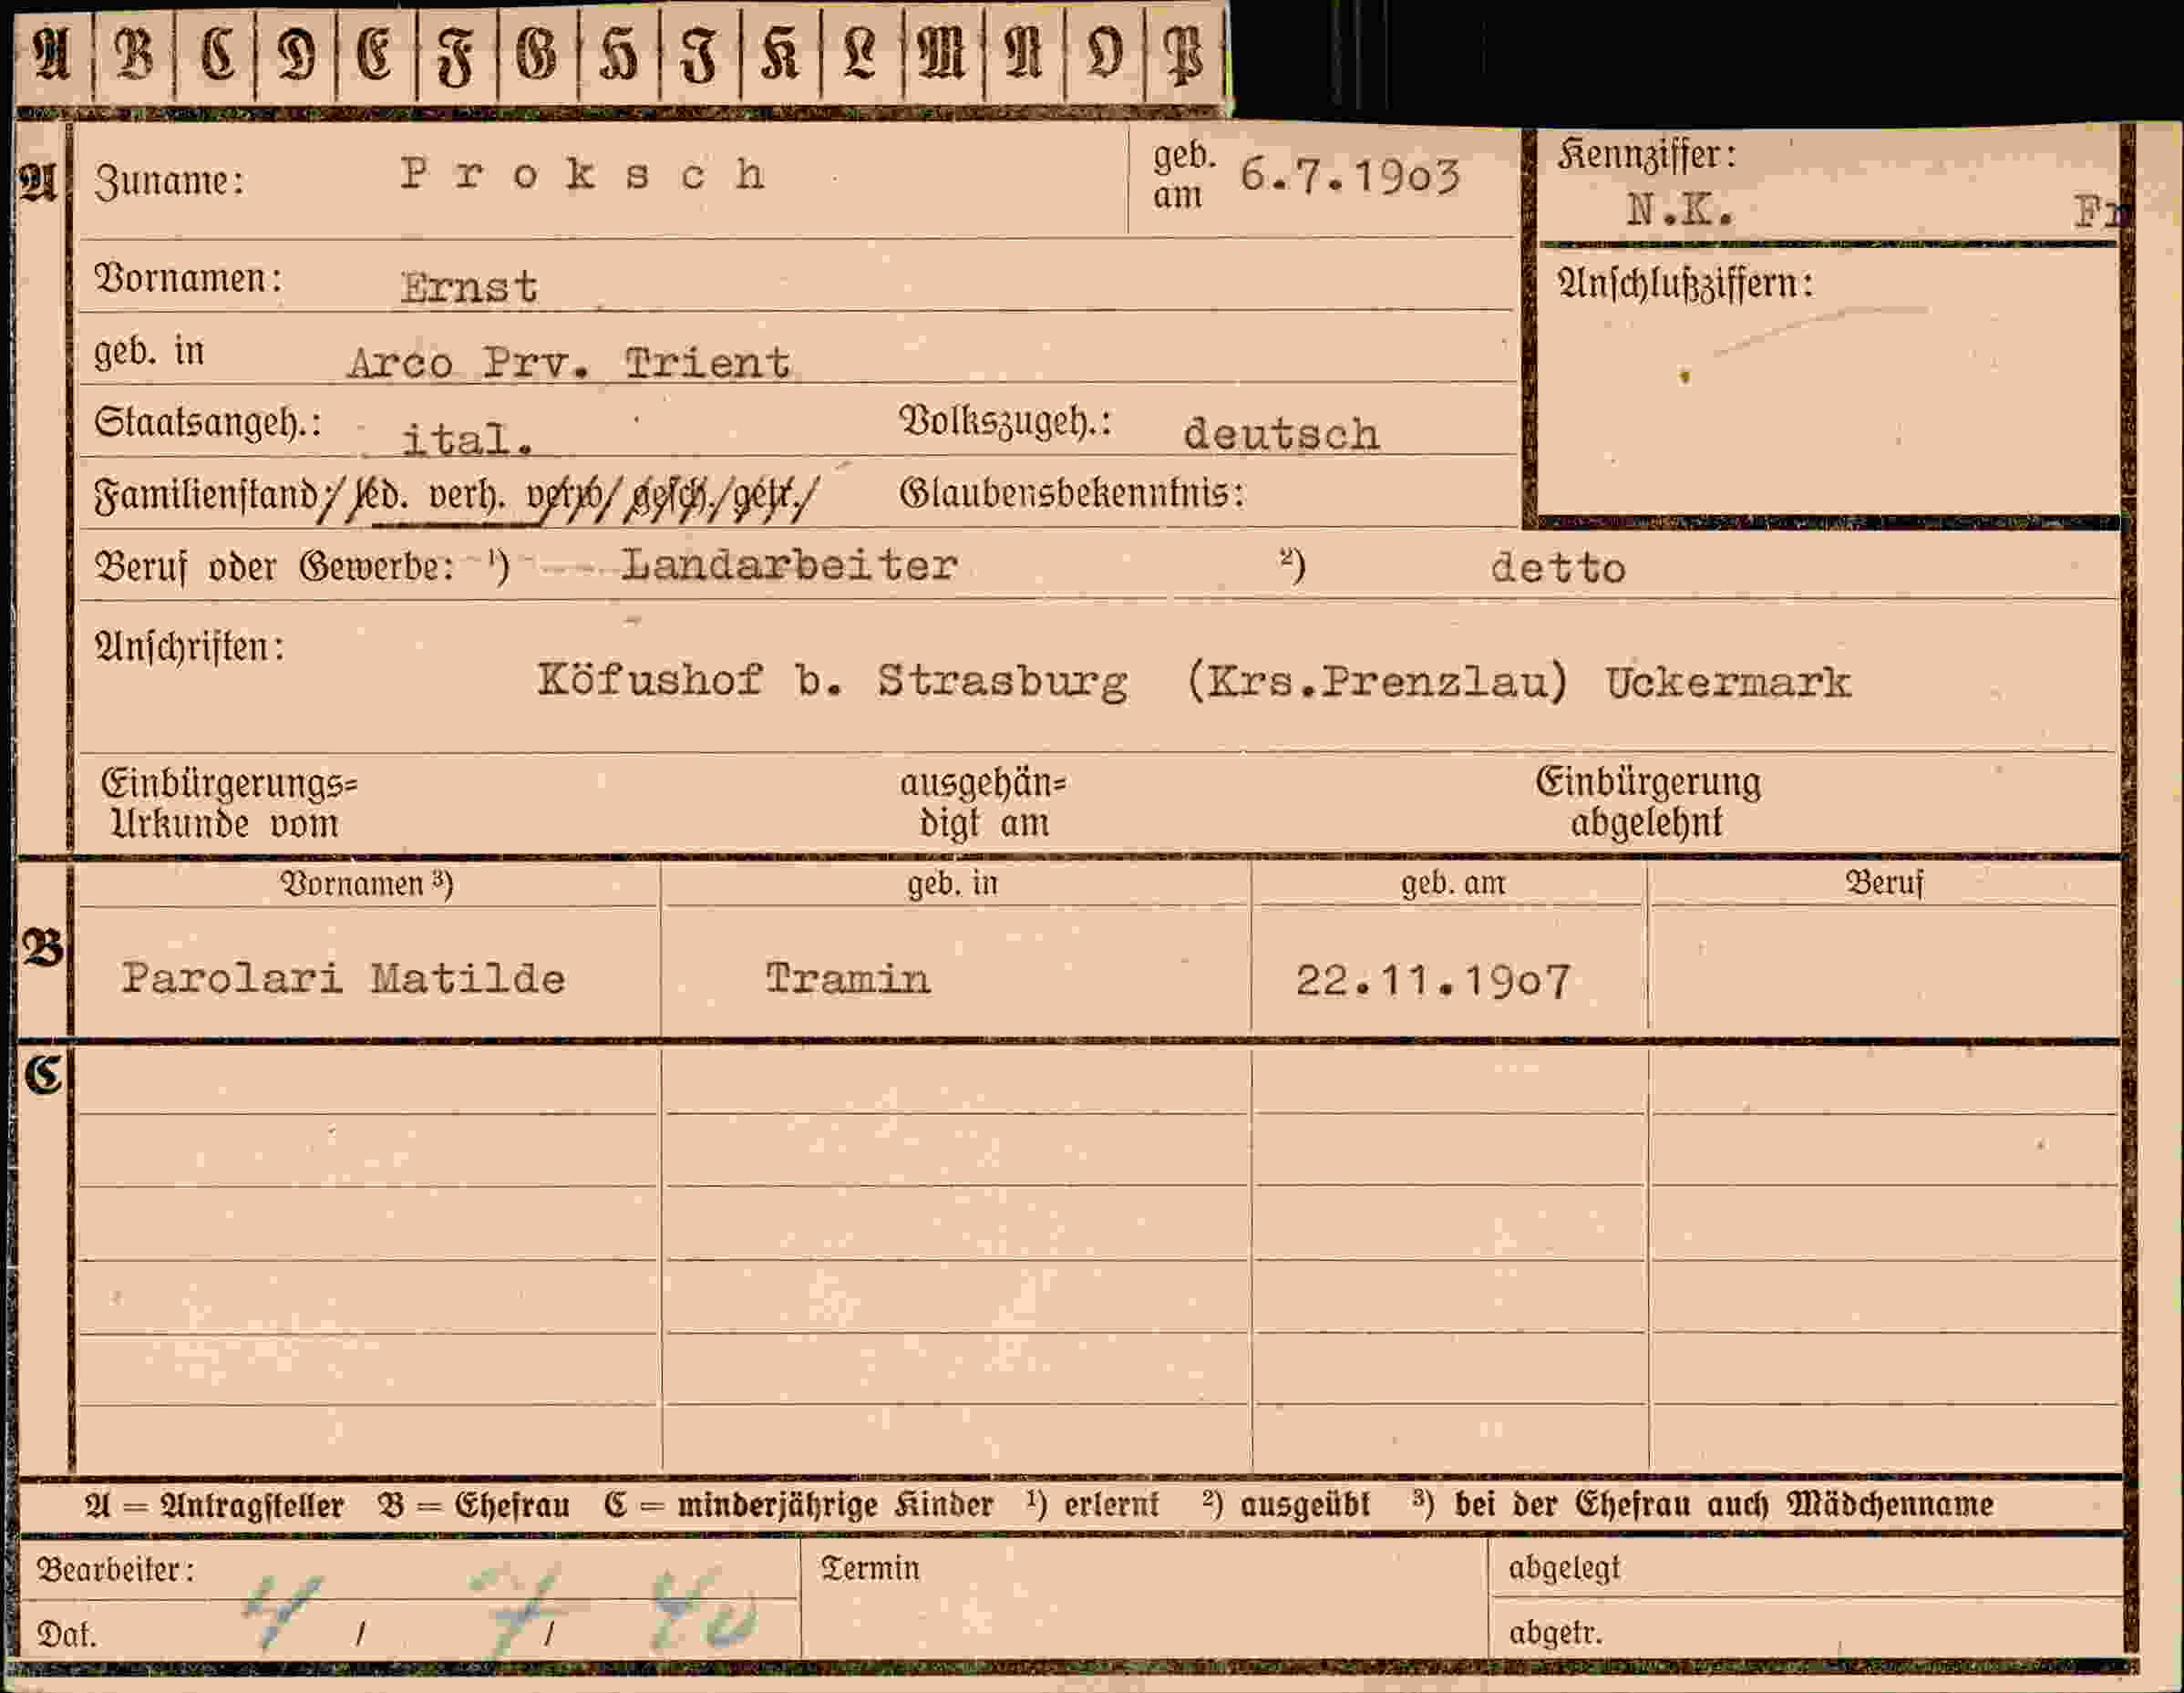 A B C D E F G H I K L M N O P
A Zuname: Proksch geb. am 6.7.19o3
Kennziffer:
N.K. Fr
Vornamen: Ernst
Anschlußziffern:
geb. in Arco Prv. Trient
Staatsangeh.: ital. Volkszugeh.: deutsch
Familienstand: led. verh. verw. gesch. getr. Glaubensbekenntnis:
Beruf oder Gewerbe: ¹) Landarbeiter ²) detto
Anschriften:
Köfushof b. Strasburg (Krs.Prenzlau) Uckermark
Einbürgerungs= ausgehän= Einbürgerung
Urkunde vom digt am abgelehnt
Vornamen ³) geb. in geb. am Beruf
B Parolari Matilde Tramin 22.11.19o7
C
A = Antragsteller B = Ehefrau C = minderjährige Kinder ¹) erlernt ²) ausgeübt ³) bei der Ehefrau auch Mädchenname
Bearbeiter: Termin abgelegt
Dat. 4 / 7 / 40 abgetr.